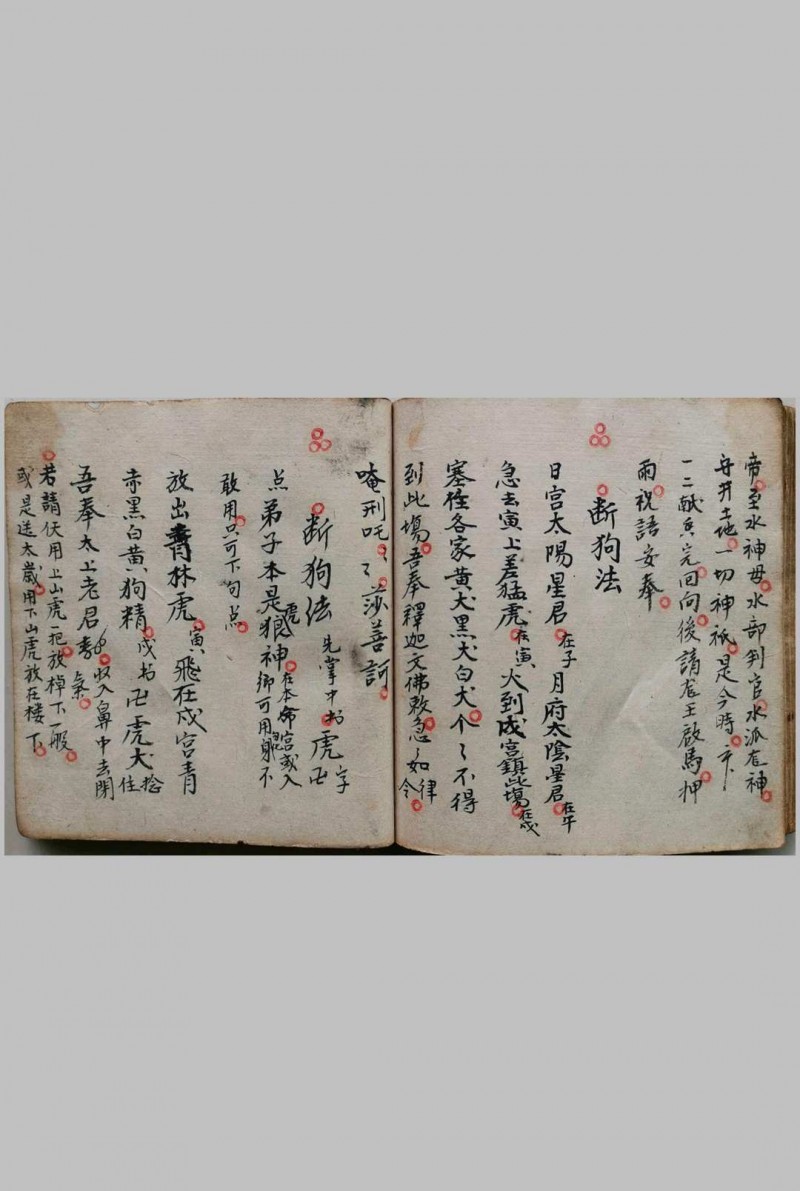 帝至水神母水部判官水派龙神
舟井土地一切神祇是今時
一二献兵完回向後請龙王啟馬押
雨祝語安奉
断狗法
日宮太陽星君在子月府太陰星君在午
急去寅上差猛虎在寅火到戍宮鎮此場在戍
塞徃各家黄犬黑犬白犬个々不得
到此場吾奉釋迦文佛敕急々如律令
唵刑吒々莎善訶
断狗法先掌中书虎卍字
点弟子本是狼虎神在本命宮或入
敢用只可下句点
放出青林虎寅飛在戍宮青
赤黑白黄狗精戍书卍虎犬捻住
吾奉太上老君收入鼻中去閉氣
若請伏用上山虎一把放棹下一般
或是送太歲用下山虎放在楼下